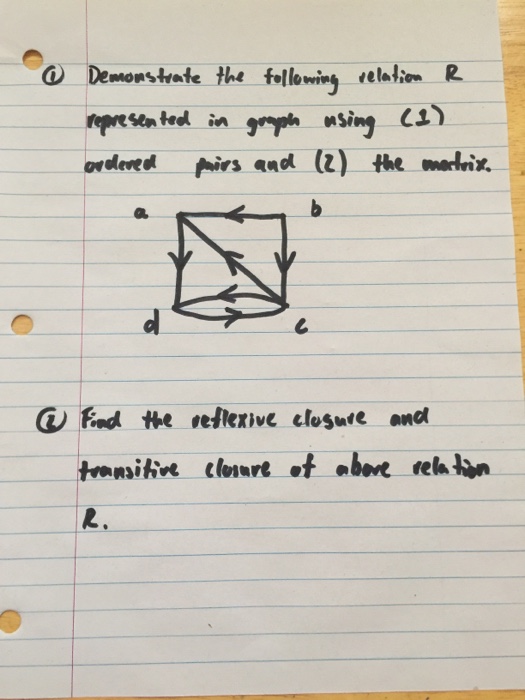 ① Demonstrate the following relation R
represented in graph using (1)
ordered pairs and (2) the matrix.
a b
d c
② Find the reflexive closure and
transitive closure of above relation
R.